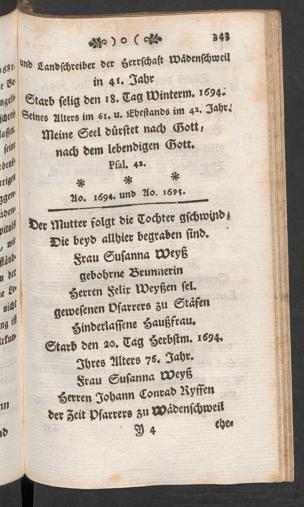 )o( 343
und Landschreiber der Herrschaft Wädenschweil
in 41. Jahr
Starb selig den 18. Tag Winterm. 1694.
Seines Alters im 61. u. Ehestands im 42. Jahr.
Meine Seel dürstet nach Gott,
nach dem lebendigen Gott.
Psal. 42.
* * *
Ao. 1694. und Ao. 1695.
Der Mutter folgt die Tochter gschwind,
Die beyd allhier begraben sind.
Frau Susanna Weyß
gebohrne Brunnerin
Herren Felix Weyßen sel.
gewesenen Pfarrers zu Stäfen
Hinderlassene Haußfrau.
Starb den 20. Tag Herbstm. 1694.
Ihres Alters 76. Jahr.
Frau Susanna Weyß
Herren Johann Conrad Ryffen
der Zeit Pfarrers zu Wädenschweil
Y 4 ehe-